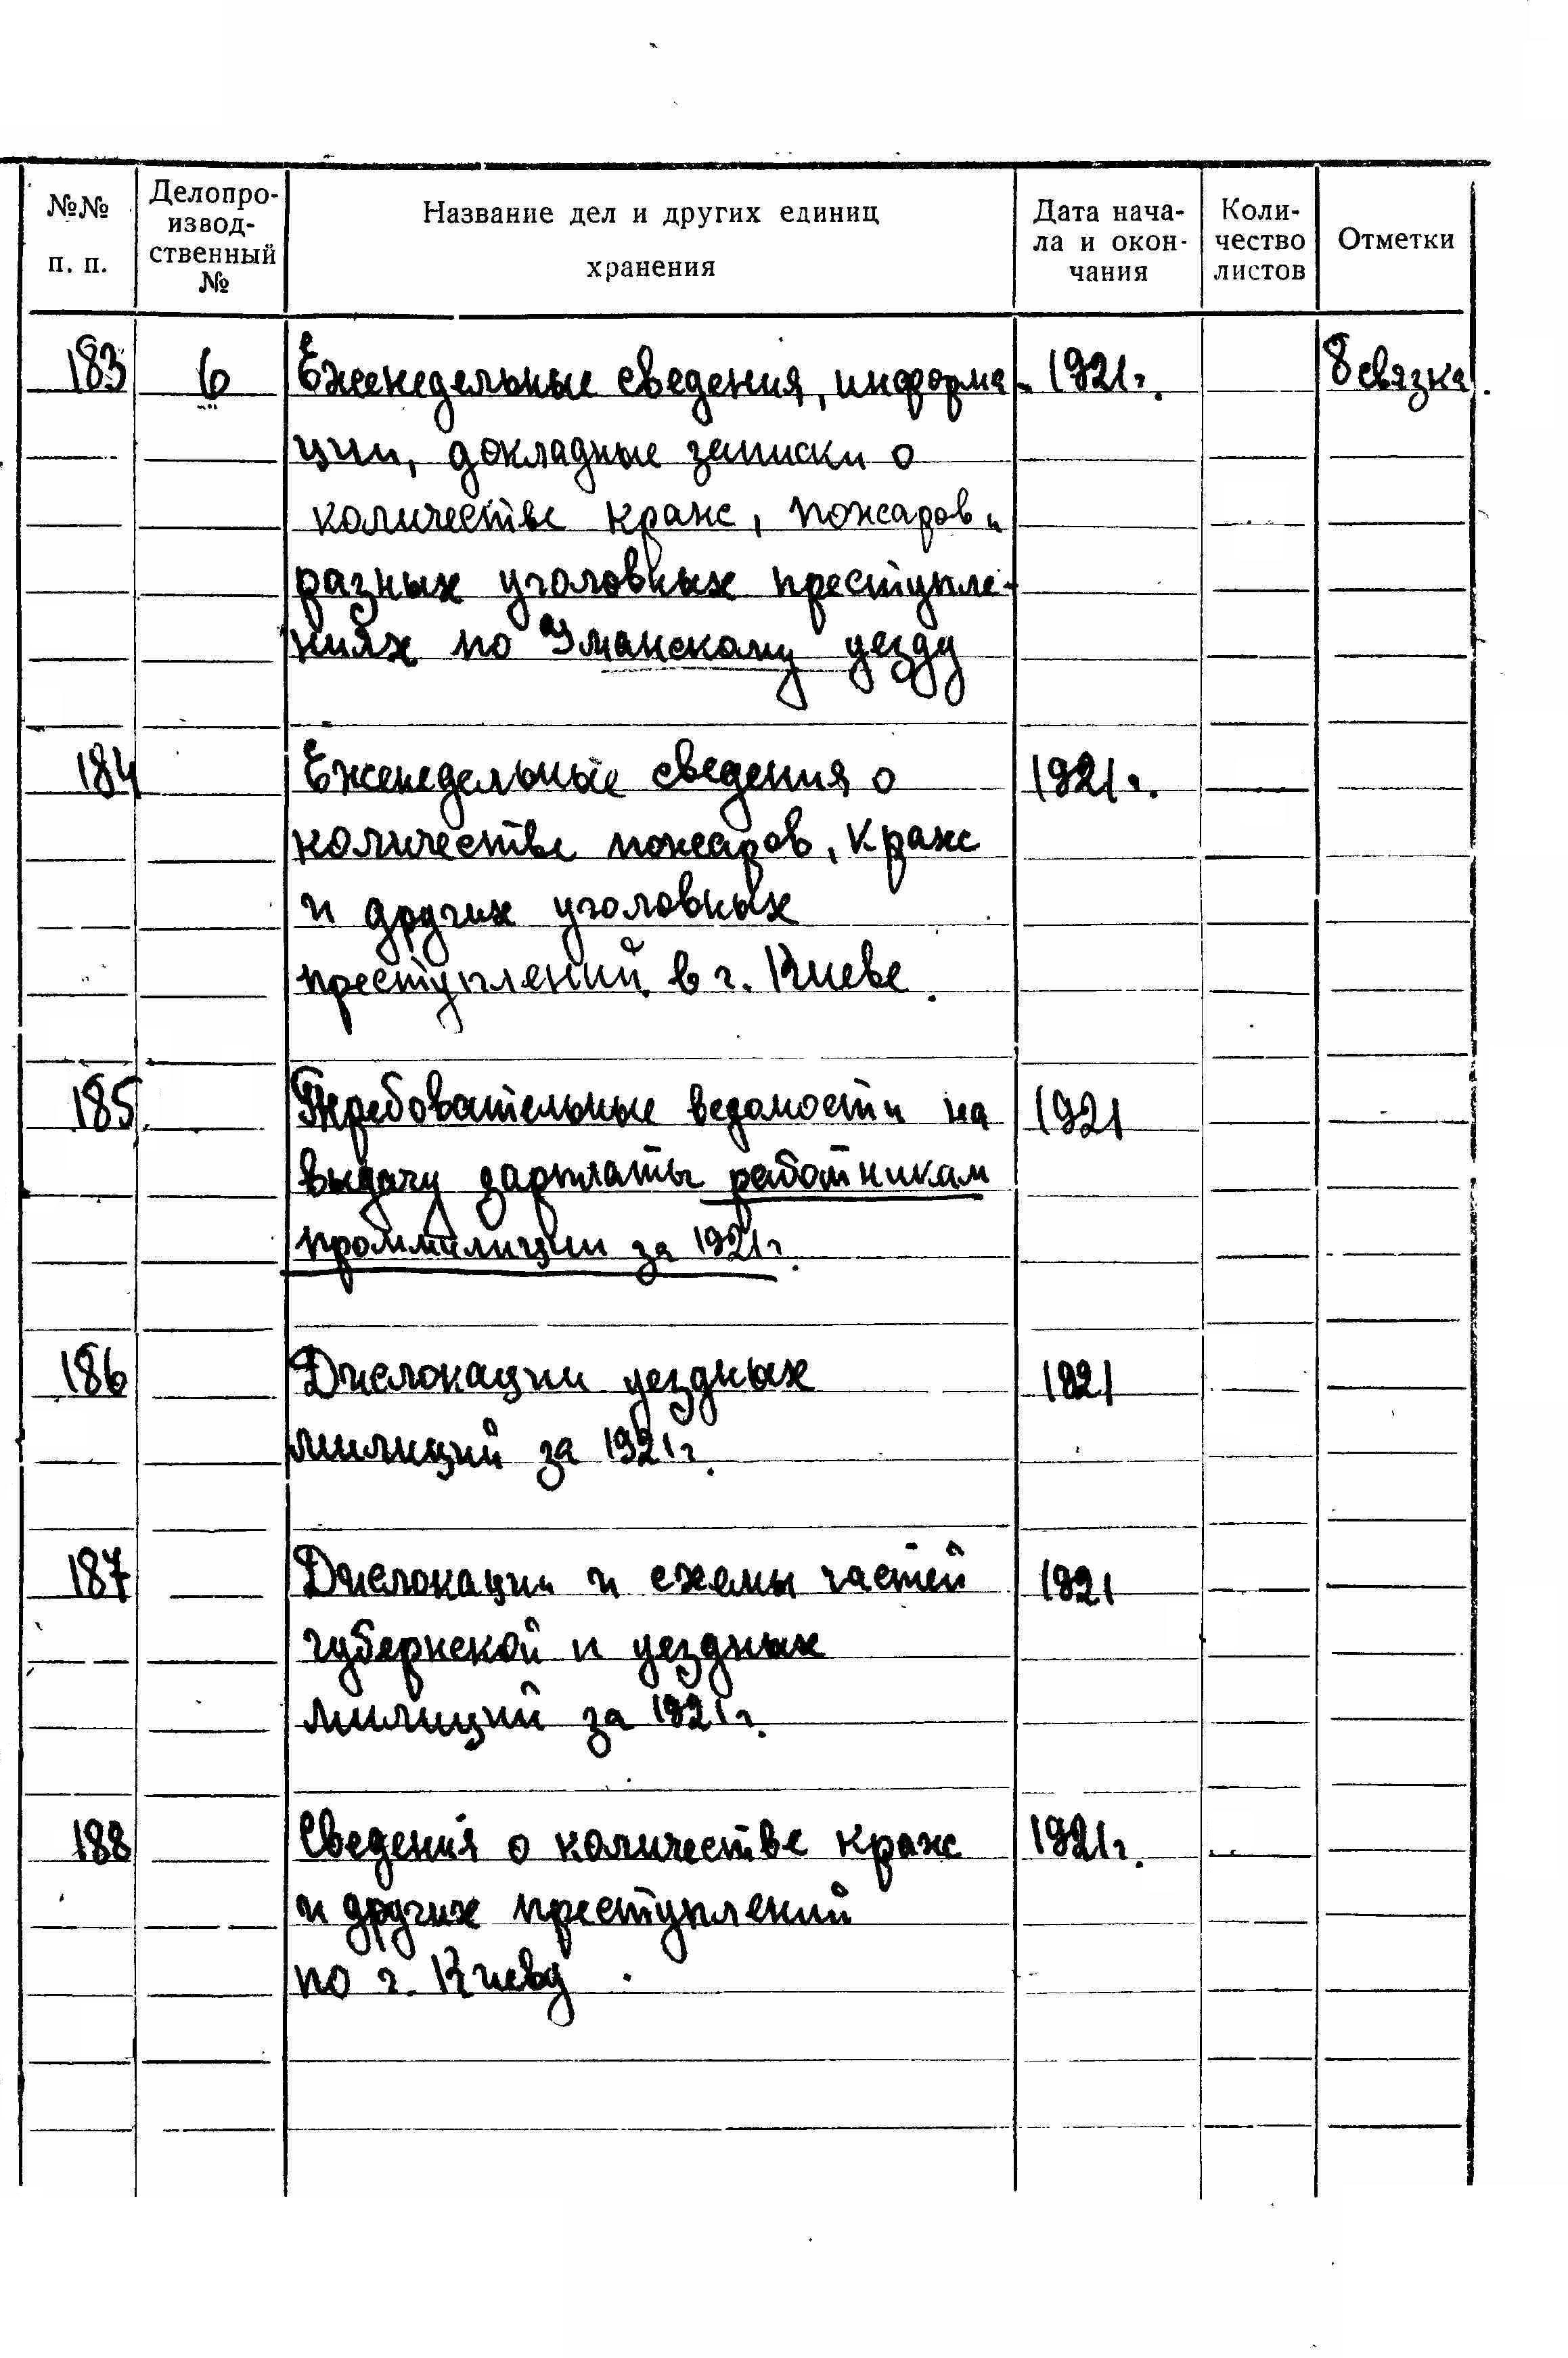 №№ п. п.
Делопро-
извод-
ственный
№
Название дел и других единиц
хранения
Дата нача-
ла и окон-
чания
Коли-
чество
листов
Отметки
183 6 Еженедельные сведения, информа- 1921г. 8 связка
ции, докладные записки о
количестве краж, пожаров и
разных уголовных преступле-
ниях по Уманскому уезду
184 Еженедельные сведения о 1921г.
количестве пожаров, краж
и других уголовных
преступлений в г. Киеве.
185 Требовательные ведомости на 1921
выдачу зарплаты работникам
проммилиции за 1921г.
186 Дислокации уездных 1921
милиций за 1921г.
187 Дислокации и схемы частей 1921
губернской и уездных
милиций за 1921г.
188 Сведения о количестве краж 1921г.
и других преступлений
по г. Киеву.